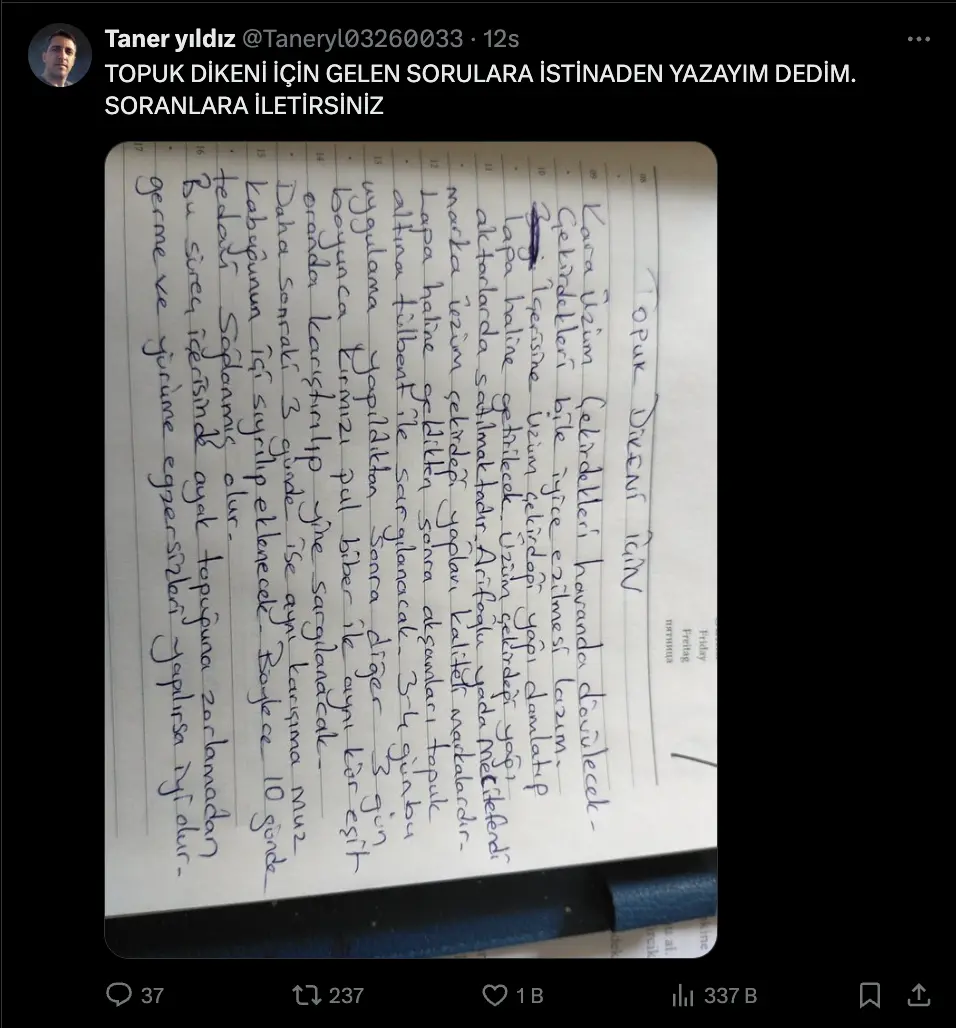 Taner yıldız @Taneryl03260033 · 12s
TOPUK DİKENİ İÇİN GELEN SORULARA İSTİNADEN YAZAYIM DEDİM.
SORANLARA İLETİRSİNİZ
Friday
Freitag
пятница
TOPUK DİKENİ İÇİN
08
Kara Üzüm Çekirdekleri havanda dövülecek-
09
Çekirdekleri bile iyice ezilmesi lazım-
10
İçerisine üzüm çekirdeği yağı damlatıp
lapa haline getirilecek. Üzüm çekirdeği yağı
11
aktarlarda satılmaktadır. Arifoğlu yada Mecitefendi
marka üzüm çekirdeği yağları kaliteli markalardır-
12
Lapa haline geldikten sonra akşamları topuk
altına tülbent ile sargılanacak. 3-4 gün bu
13
uygulama yapıldıktan sonra diğer 3 gün
boyunca kırmızı pul biber ile aynı kür eşit
14
oranda karıştırılıp yine sargılanacak-
Daha sonraki 3 günde ise aynı karışıma muz
15
kabuğunun içi sıyrılıp eklenecek- Böylece 10 günde
tedavi sağlanmış olur-
16
Bu süreç içerisinde ayak topuğuna zorlamadan
germe ve yürüme egzersizleri yapılırsa iyi olur-
17
37
237
1 B
337 B